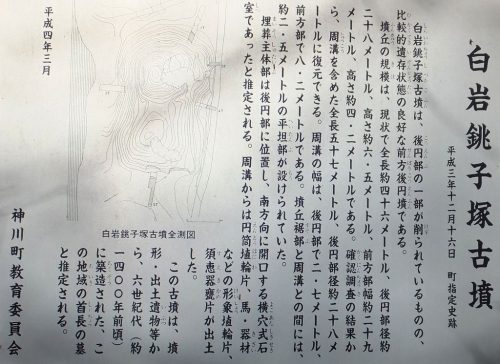 白岩銚子塚古墳
平成三年十二月十六日　町指定史跡
白岩銚子塚古墳は、後円部の一部が削られているものの、
比較的遺存状態の良好な前方後円墳である。
墳丘の規模は、現状で全長約四十六メートル、後円部径約
二十八メートル、高さ約六・五メートル、前方部幅約二十九
メートル、高さ約四・二メートルである。確認調査の結果か
ら、周溝を含めた全長五十七メートル、後円部径約二十八メ
ートルに復元できる。周溝の幅は、後円部で二・七メートル、
前方部で八・二メートルである。墳丘裾部と周溝との間には、
約二・五メートルの平坦部が設けられていた。
埋葬主体部は後円部に位置し、南方向に開口する横穴式石
室であったと推定される。周溝からは円筒埴輪片、馬・器材
などの形象埴輪片、
須恵器甕片が出土
した。
この古墳は、墳
形・出土遺物等か
ら、六世紀代（約
一四〇〇年前頃）
に築造された、こ
の地域の首長の墓
と推定される。
白岩銚子塚古墳全測図
平成四年三月
神川町教育委員会